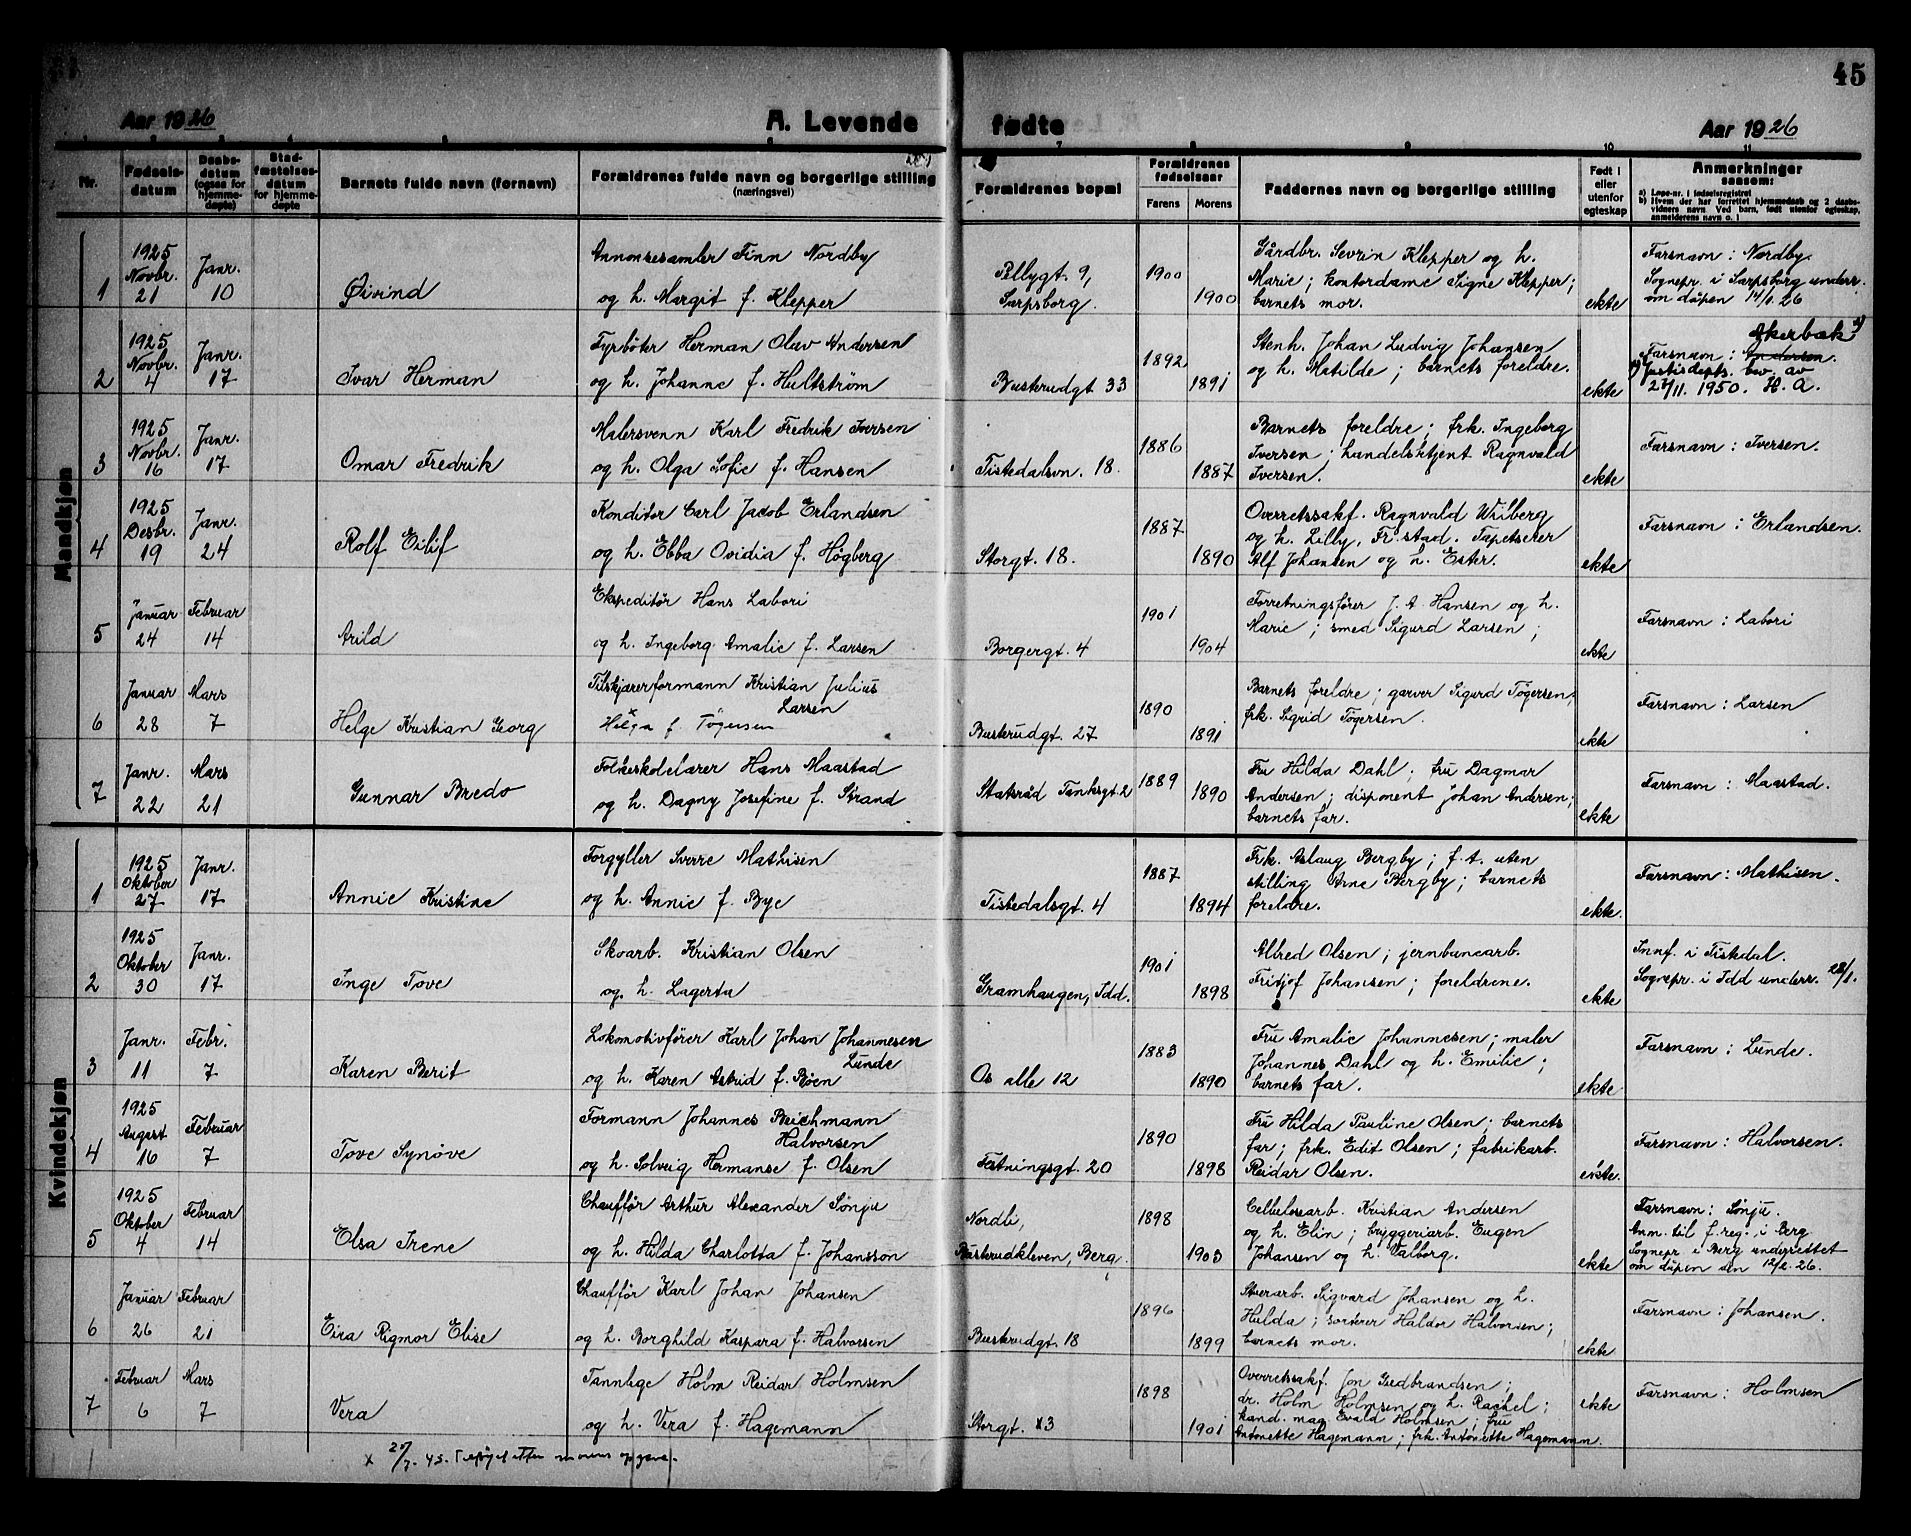 45
Aar 1926 A. Levende fødte Aar 1926
Nr.
Fødsels-datum
Daabs-datum (ogsaa for hjemme-døpte)
Stad-fæstelses-datum for hjemme-døpte
Barnets fulde navn (fornavn)
Forældrenes fulde navn og borgerlige stilling (næringsvei)
Forældrenes bopæl
Forældrenes fødselsaar
Farens Morens
Faddernes navn og borgerlige stilling
Født i eller utenfor egteskap
Anmerkninger saasom:
a) Løpe-nr. i fødselsregistret
b) Hvem der har forrettet hjemmedaab og 2 daabs-vidners navn. Ved barn, født utenfor egteskap, anmelderens navn o. l
Mandkjøn
1925 Annonsesamler Finn Nordby Gårdbr. Sevrin Klepper og h. Farsnavn: Nordby.
Novbr. Janr. Pellygt. 9, 1900 Marie; kontordame Signe Klepper; Sognepr. i Sarpsborg underr.
1 21 10 Øivind og h. Margit f. Klepper Sarpsborg. 1900 barnets mor. ekte om dåpen 14/1. 26
1925 Fyrbøter Herman Olav Andersen Stenh. Johan Ludvig Johansen Akerbæk x)
Novbr. Janr. 1892 og h. Matilde; barnets foreldre. Farsnavn: Andersen.
2 4 17 Ivar Herman og h. Johanne f. Hultstrøm Buskrudgt 33 1891 ekte x) Justisdepts. bev. av
27/11. 1950. H. A.
1925 Malersvenn Karl Fredrik Iversen Barnets foreldre; frk. Ingeborg
Novbr. Janr. 1886 Iversen; handelsbetjent Ragnvald Farsnavn: Iversen.
3 16 17 Omar Fredrik og h. Olga Sofie f. Hansen Tistedalsvn. 18. 1887 Iversen. ekte
1925 Konditor Carl Jacob Erlandsen Overretssakf. Ragnvald Wiiberg
Desbr. Janr. 1887 og h. Lilly, Fr.stad. Tapetserer Farsnavn: Erlandsen.
4 19 24 Rolf Eilif og h. Ebba Ovidia f. Høgberg Storgt. 18. 1890 Alf Johansen og h. Ester. ekte
Januar Februar Ekspeditør Hans Labori 1901 Forretningsfører J. A. Hansen og h. Farsnavn: Labori
5 24 14 Arild og h. Ingeborg Amalie f. Larsen Borgergt. 4 1904 Marie; smed Sigurd Larsen; ekte
Januar Mars Tilskjærerformann Kristian Julius Larsen 1890 Barnets foreldre; garver Sigurd Tøgersen; Farsnavn: Larsen
6 28 7 Helge Kristian Georg x Helga f. Tøgersen Buskrudgt. 27 1891 frk. Sigrid Tøgersen. ekte
Janr. Mars Folkeskolelærer Hans Maastad 1889 Fru Hilda Dahl; fru Dagmar Farsnavn: Maastad.
7 22 21 Gunnar Bredo og h. Dagny Josefine f. Strand Statsråd Tanksgt. 2 1890 Andersen; disponent Johan Andersen;
barnets far. ekte
Kvindekjøn
1925 Forgyller Sverre Mathisen Frk. Aslaug Bergby; f. t. uten
Oktober Janr. 1887 stilling Arne Bergby; barnets Farsnavn: Mathisen.
1 27 17 Annie Kristine og h. Annie f. Bye Tistedalsgt. 4 1894 foreldre. ekte.
1925 Skoarb. Kristian Olsen Alfred Olsen; jernbanearb. Innf. i Tistedal.
Oktober Janr. 1901 Fritjof Johansen; foreldrene. Sognepr. i Idd underr. 28/1.
2 30 17 Inge Tove og h. Lagerta Gramhaugen, Idd. 1898 ekte
Janr. Febr. Lokomotivfører Karl Johan Johannesen Lunde 1883 Fru Amalie Johannesen; maler Farsnavn: Lunde.
3 11 7 Karen Berit og h. Karen Astrid f. Bøen Os alle 12 1890 Johannes Dahl og h. Emilie;
barnets far. ekte
1925 Formann Johannes Beichmann Halvorsen Fru Hilda Pauline Olsen; barnets
August Februar 1890 far; frk. Edit Olsen; fabrikarb. Farsnavn: Halvorsen.
4 16 7 Tove Synøve og h. Solveig Hermanse f. Olsen Festningsgt. 20 1898 Reidar Olsen. ekte.
1925 Chauffør Arthur Alexander Sønju Cellulosearb. Kristian Andersen Farsnavn: Sønju.
Oktober Februar Nordli, 1898 og h. Elin; bryggeriarb. Eugen Anm. til f. reg. i Berg
5 4 14 Elsa Irene og h. Hilda Charlotta f. Johansson Buskrudkleven, Berg. 1903 Johansen og h. Valborg. ekte Sognepr i Berg underrettet
om dåpen den 12/2. 26.
Januar Februar Chauffør Karl Johan Johansen 1896 Skoarb. Sigvard Johansen og h. Farsnavn: Johansen.
6 26 21 Eira Rigmor Elise og h. Borghild Kaspara f. Halvorsen Buskrudgt. 18 1899 Hulda; sorterer Haldor Halvorsen;
barnets mor. ekte
Februar Mars Tannlege Holm Reidar Holmsen 1898 Overretssakf. Jon Gudbrandsen; Farsnavn: Holmsen
7 6 7 Vera og h. Vera f. Hagemann Storgt. 3 1901 dr. Holm Holmsen og h. Rachel; ekte
kand. mag. Evald Holmsen; fru
Antonette Hagemann; frk. Antonette Hagemann.
x 20/7. 45. Tilføyet etter morens opgave.